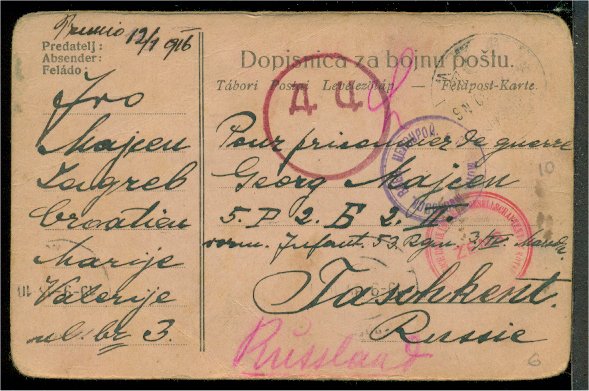 Premio 12/1 916
Predatelj:
Absender:
Feladó:
Ivo
Majcen
Zagreb
Croatien
Marije
Valerije
ul: br 3.
Dopisnica za bojnu poštu.
Tábori Postai Levelezőlap — Feldpost-Karte.
Д Ц
Pour prisonnier de guerre
Georg Majcen
5. P 2. Б 2. II.
vorm. Infant. 53. Rgm. 3/IV.
Taschkent.
Russie
Russland
10
6